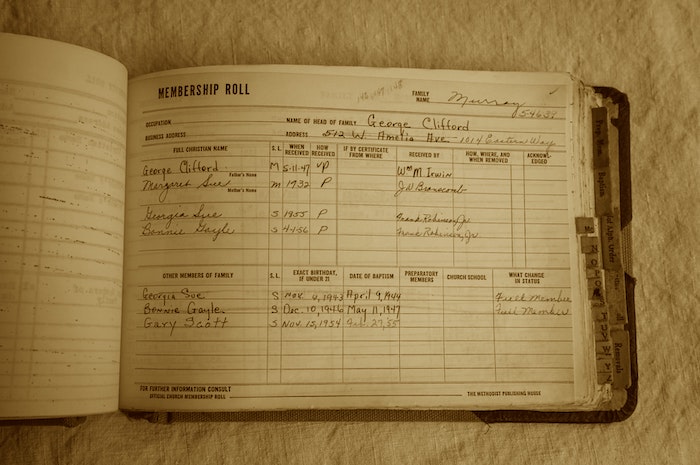 MEMBERSHIP ROLL
FAMILY NAME Murray
54633
OCCUPATION NAME OF HEAD OF FAMILY George Clifford
BUSINESS ADDRESS ADDRESS 512 W. Amelia Ave. - 1014 Eastern Way
FULL CHRISTIAN NAME S. L. WHEN RECEIVED HOW RECEIVED IF BY CERTIFICATE FROM WHERE RECEIVED BY HOW, WHERE, AND WHEN REMOVED ACKNOWL-EDGED
George Clifford M 5-11-47 VP Wm M. Irwin
Father's Name
Margaret Sue m 1932 P J.W. Branscomb
Mother's Name
Georgia Sue S 1955 P Frank Robinson, Jr.
Bonnie Gayle S 4-1-56 P Frank Robinson, Jr.
OTHER MEMBERS OF FAMILY S. L. EXACT BIRTHDAY, IF UNDER 21 DATE OF BAPTISM PREPARATORY MEMBERS CHURCH SCHOOL WHAT CHANGE IN STATUS
Georgia Sue S Nov. 4, 1943 April 9, 1944 Full Member
Bonnie Gayle S Dec. 10, 1946 May 11, 1947 Full Member
Gary Scott S Nov. 15, 1954 Feb. 27, 55
FOR FURTHER INFORMATION CONSULT
OFFICIAL CHURCH MEMBERSHIP ROLL THE METHODIST PUBLISHING HOUSE